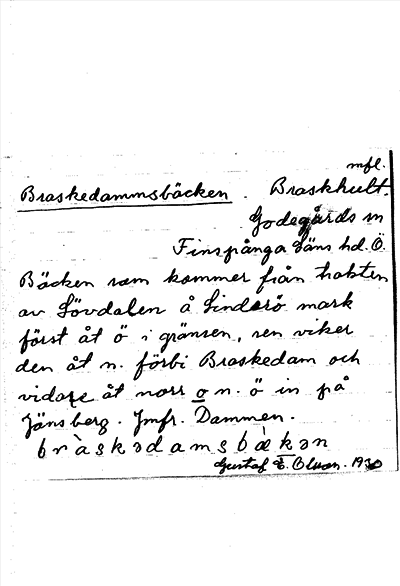 mfl.
Braskedammsbäcken. Braskhult.
Godegårds sn
Finspånga läns hd. Ö.
Bäcken som kommer från trakten
av Lövdalen å Lindsrö mark
först åt ö i gränsen, sen viker
den åt n. förbi Braskedam och
vidare åt norr o n. ö in på
Jänsberg. Jmfr. Dammen.
bràskədamsbæ̀kən
Gustaf E. Olson. 1930